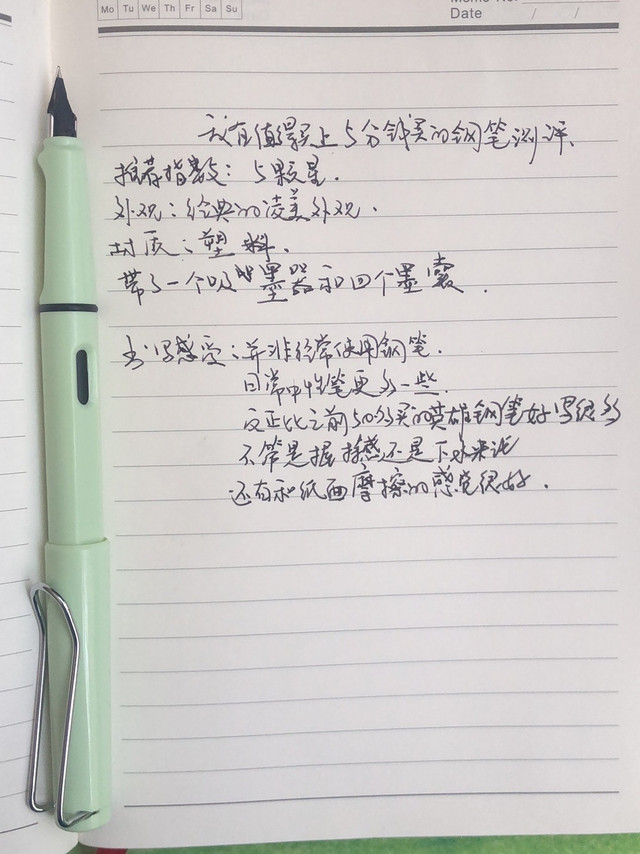 Mo Tu We Th Fr Sa Su
Memo No.
Date / /
我在值得买上5分钟买的钢笔测评、
推荐指数：5颗星.
外观：经典的凌美外观.
材质：塑料.
带了一个吸墨器和四个墨囊.
书写感受：并非经常使用钢笔.
日常中性笔更多一些.
反正比之前50多买的英雄钢笔好写很多
不管是握持感还是下水来说
还有和纸面摩擦的感觉很好.